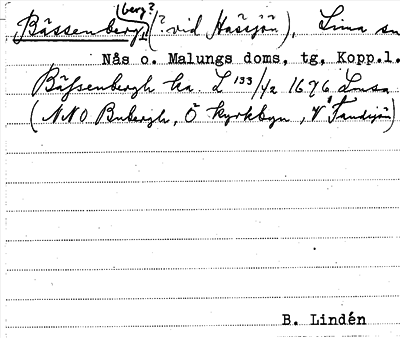 (berg?
Bässenbergh (? vid Håssjön), Lima sn
Nås o. Malungs doms, tg, Kopp.l.
Bässenbergh ka. L 133/42 1696 Lmsa
(NNO Bubergh, Ö Kyrkbyn, V Tandsjön)
B. Lindén